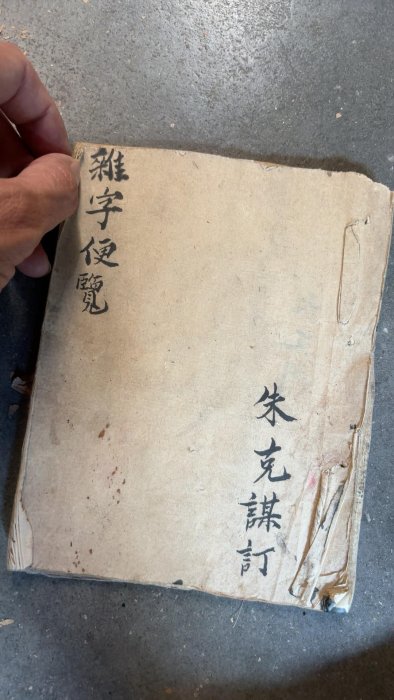 雜字便覽
朱克謀訂